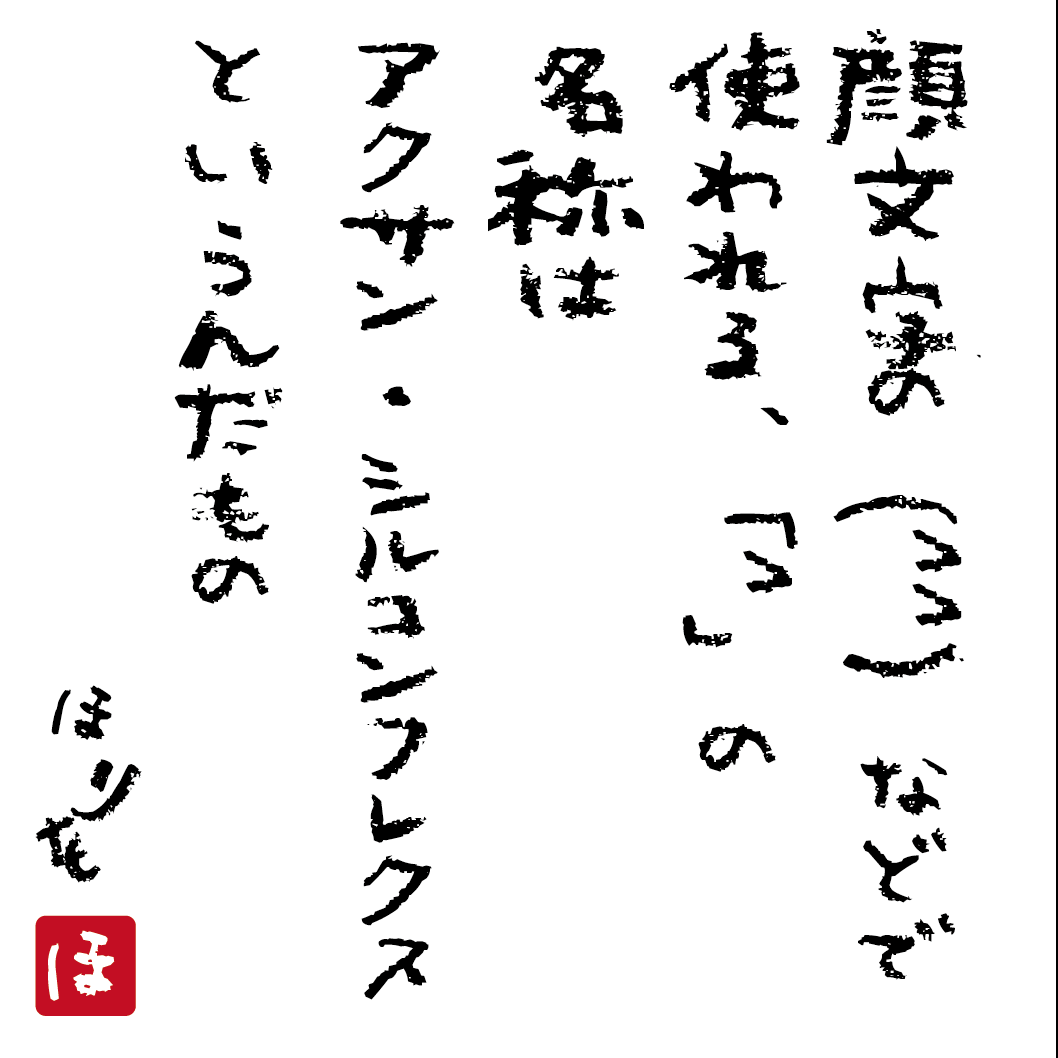 顔文字の (^^) などで
使われる、「^」の
名称は
アクサン・シルコンフレクス
というんだもの
ほりを
ほ